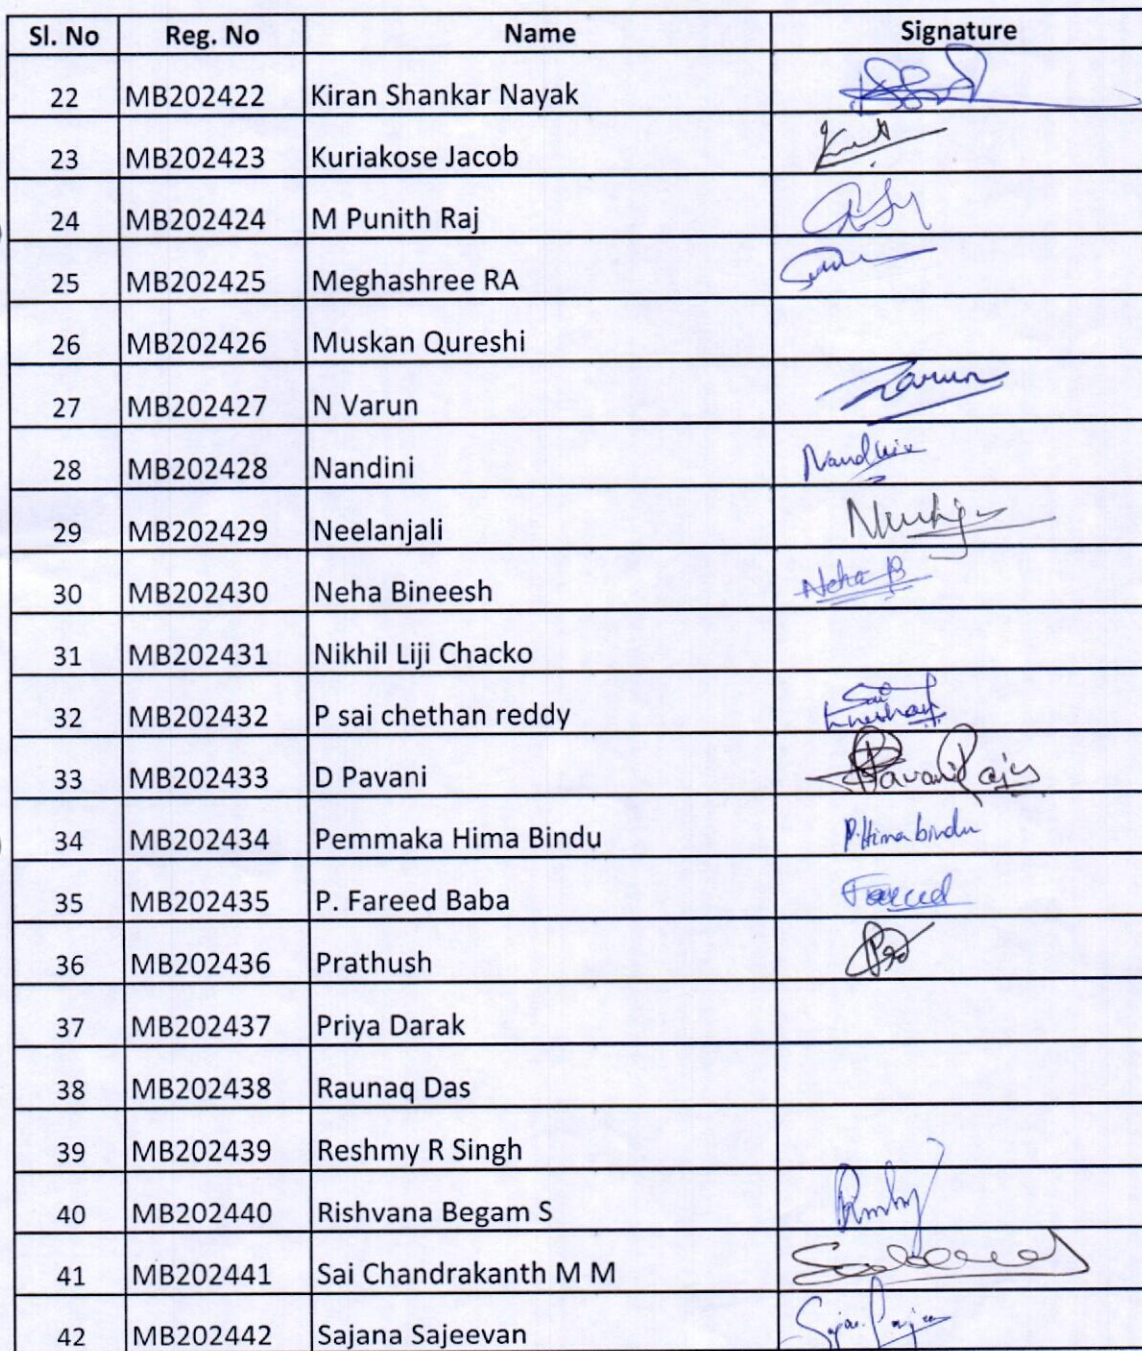 Sl. No Reg. No Name Signature
22 MB202422 Kiran Shankar Nayak
23 MB202423 Kuriakose Jacob
24 MB202424 M Punith Raj
25 MB202425 Meghashree RA
26 MB202426 Muskan Qureshi
27 MB202427 N Varun Varun
28 MB202428 Nandini
29 MB202429 Neelanjali
30 MB202430 Neha Bineesh Neha B
31 MB202431 Nikhil Liji Chacko
32 MB202432 P sai chethan reddy Sai
33 MB202433 D Pavani
34 MB202434 Pemmaka Hima Bindu P. Hima bindu
35 MB202435 P. Fareed Baba Fareed
36 MB202436 Prathush
37 MB202437 Priya Darak
38 MB202438 Raunaq Das
39 MB202439 Reshmy R Singh
40 MB202440 Rishvana Begam S
41 MB202441 Sai Chandrakanth M M
42 MB202442 Sajana Sajeevan